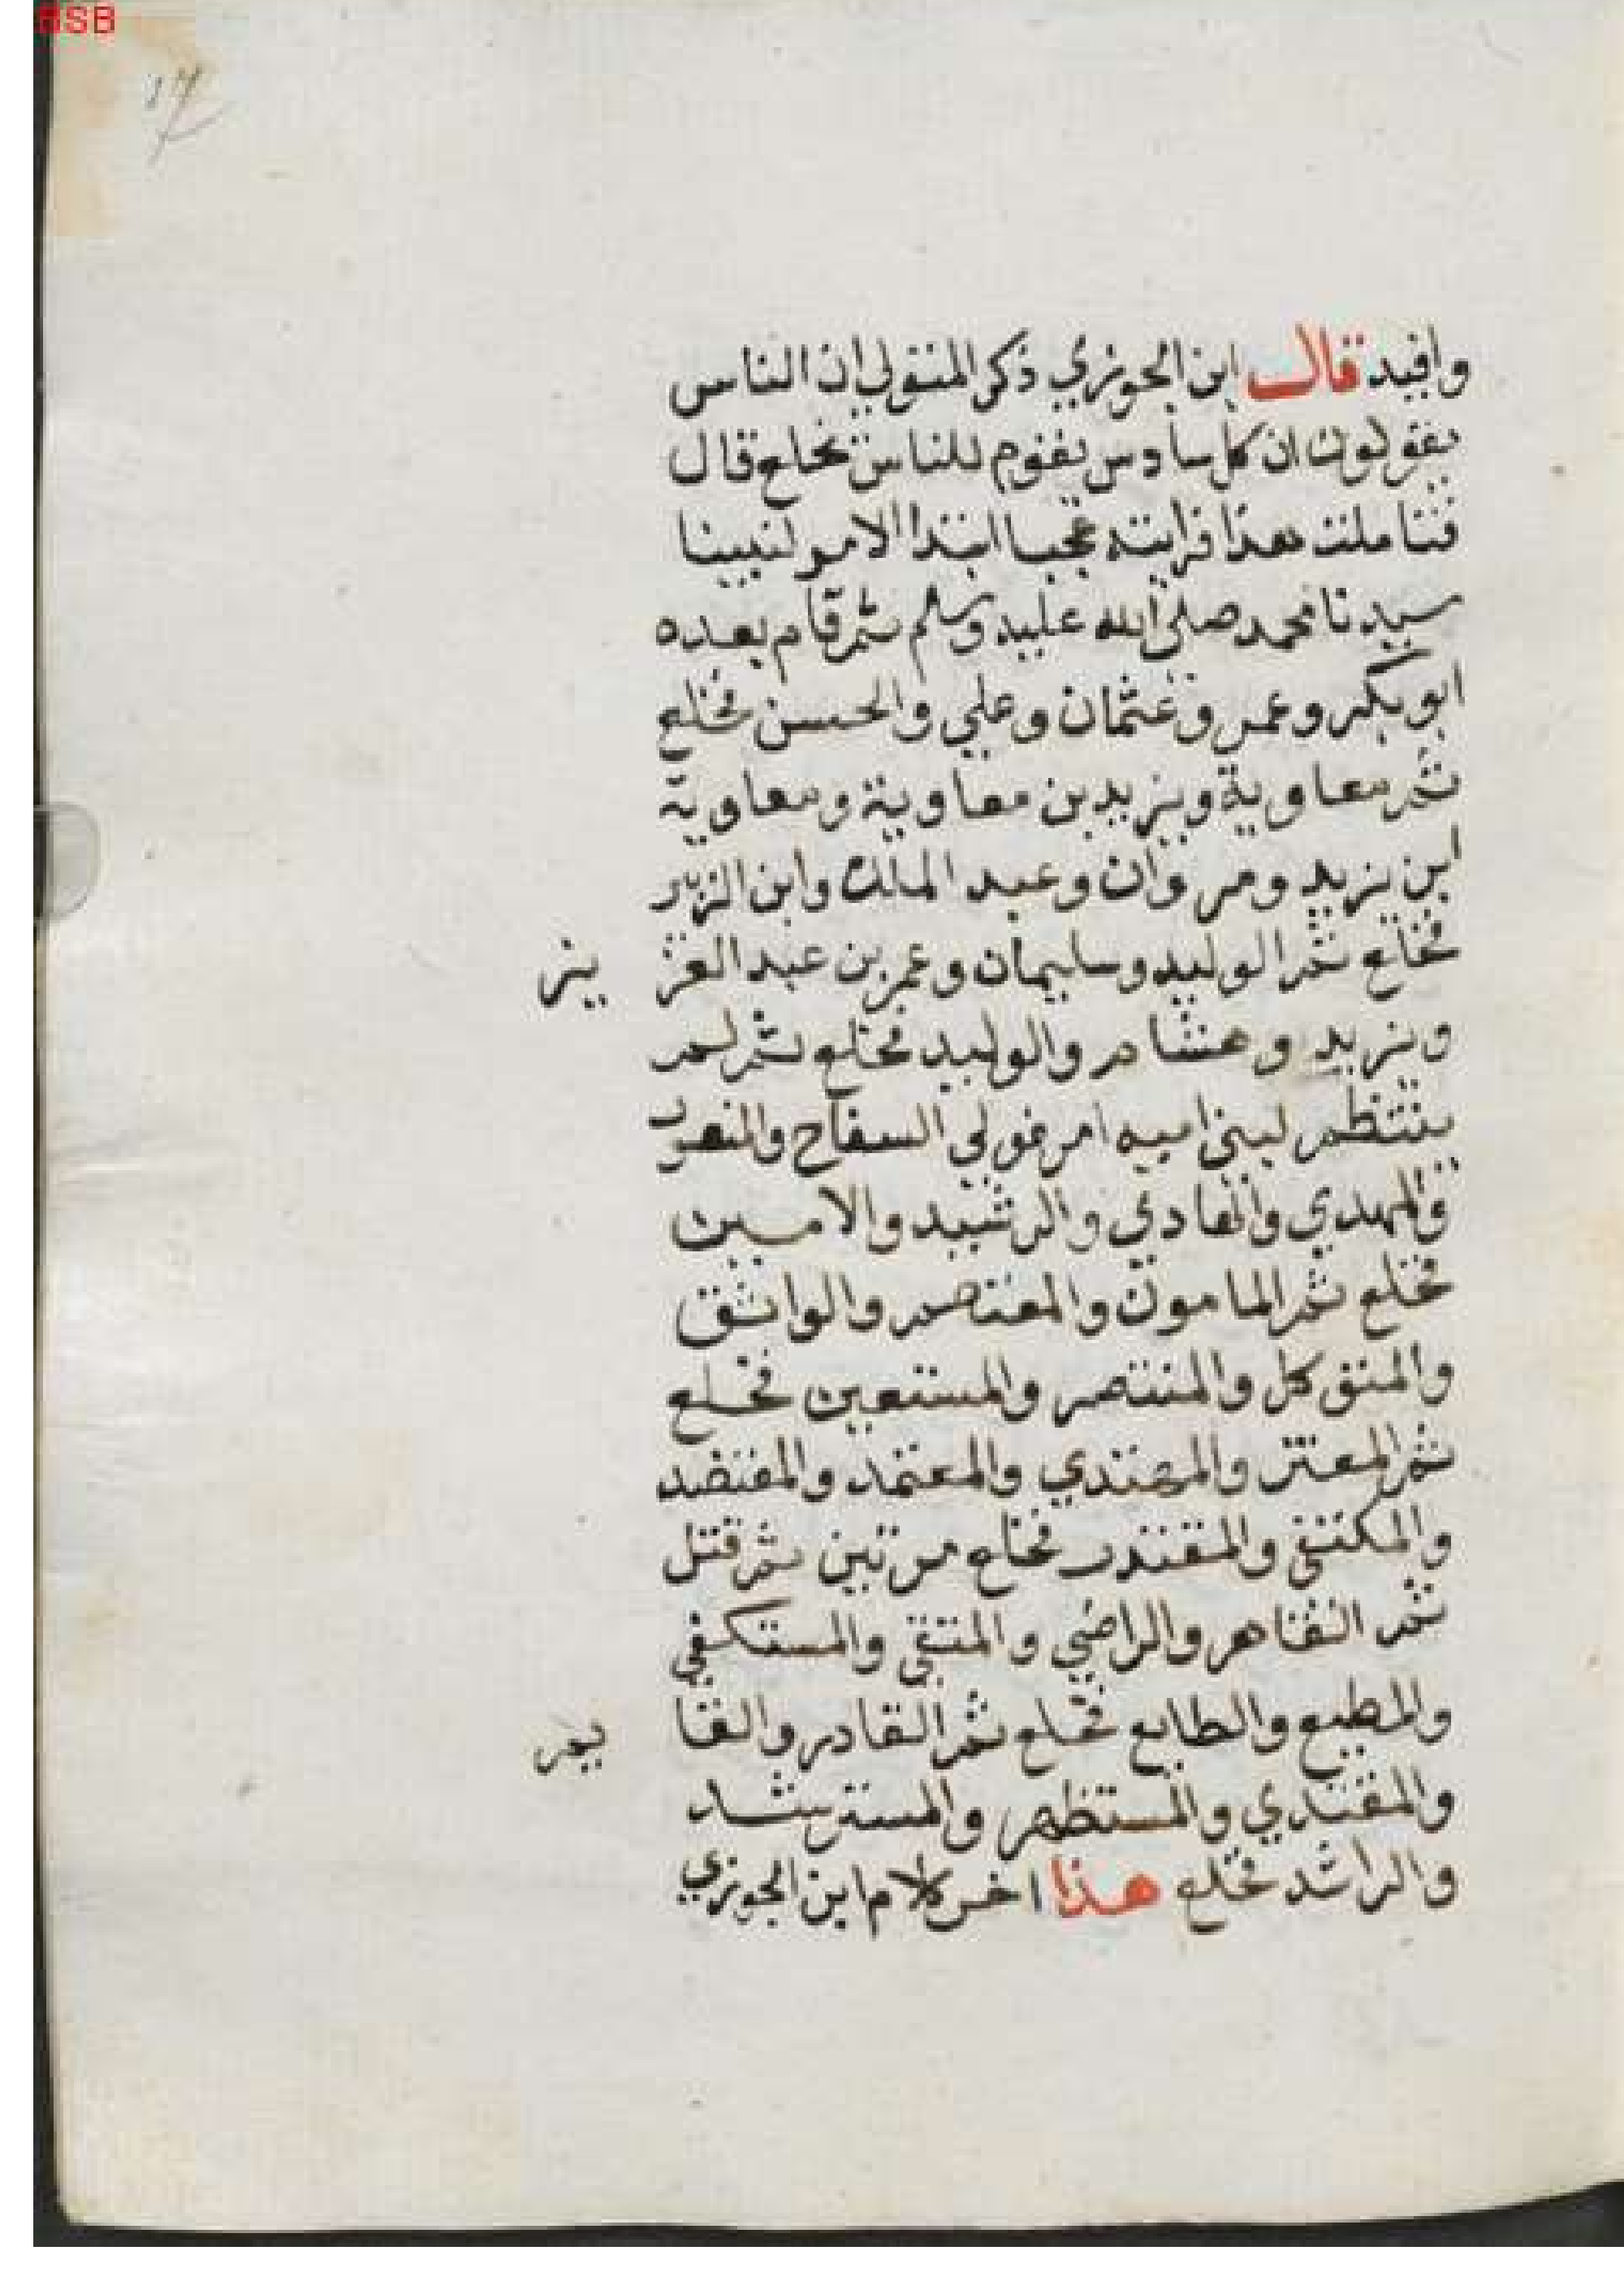 BSB
17
وافيد قال ابن الجوزي ذكر المتولي ان الناس
يقولون ان كل سادس يقوم للناس يخلع قال
فتاملت هذا فرايته عجبا ابتدا الامر لنبينا
سيدنا محمد صلى الله عليه وسلم ثم قام بعده
ابو بكر وعمر وعثمان وعلي والحسن فخلع
ثم معاوية ويزيد بن معاوية ومعاوية
ابن يزيد ومروان وعبد الملك وابن الزبير
فخلع ثم الوليد وسليمان وعمر بن عبد العزيز
ويزيد وهشام والوليد فخلع ثم لم
ينتظم لبني اميه امر فولي السفاح والمنصور
والمهدي والهادي والرشيد والامين
فخلع ثم المامون والمعتصم والواثق
والمتوكل والمنتصر والمستعين فخلع
ثم المعتز والمهتدي والمعتمد والمعتضد
والمكتفي والمقتدر فخلع مرتين ثم قتل
ثم القاهر والراضي والمتقي والمستكفي
والمطيع والطايع فخلع ثم القادر والقايم
والمقتدي والمستظهر والمسترشد
والراشد فخلع هذا اخر كلام ابن الجوزي